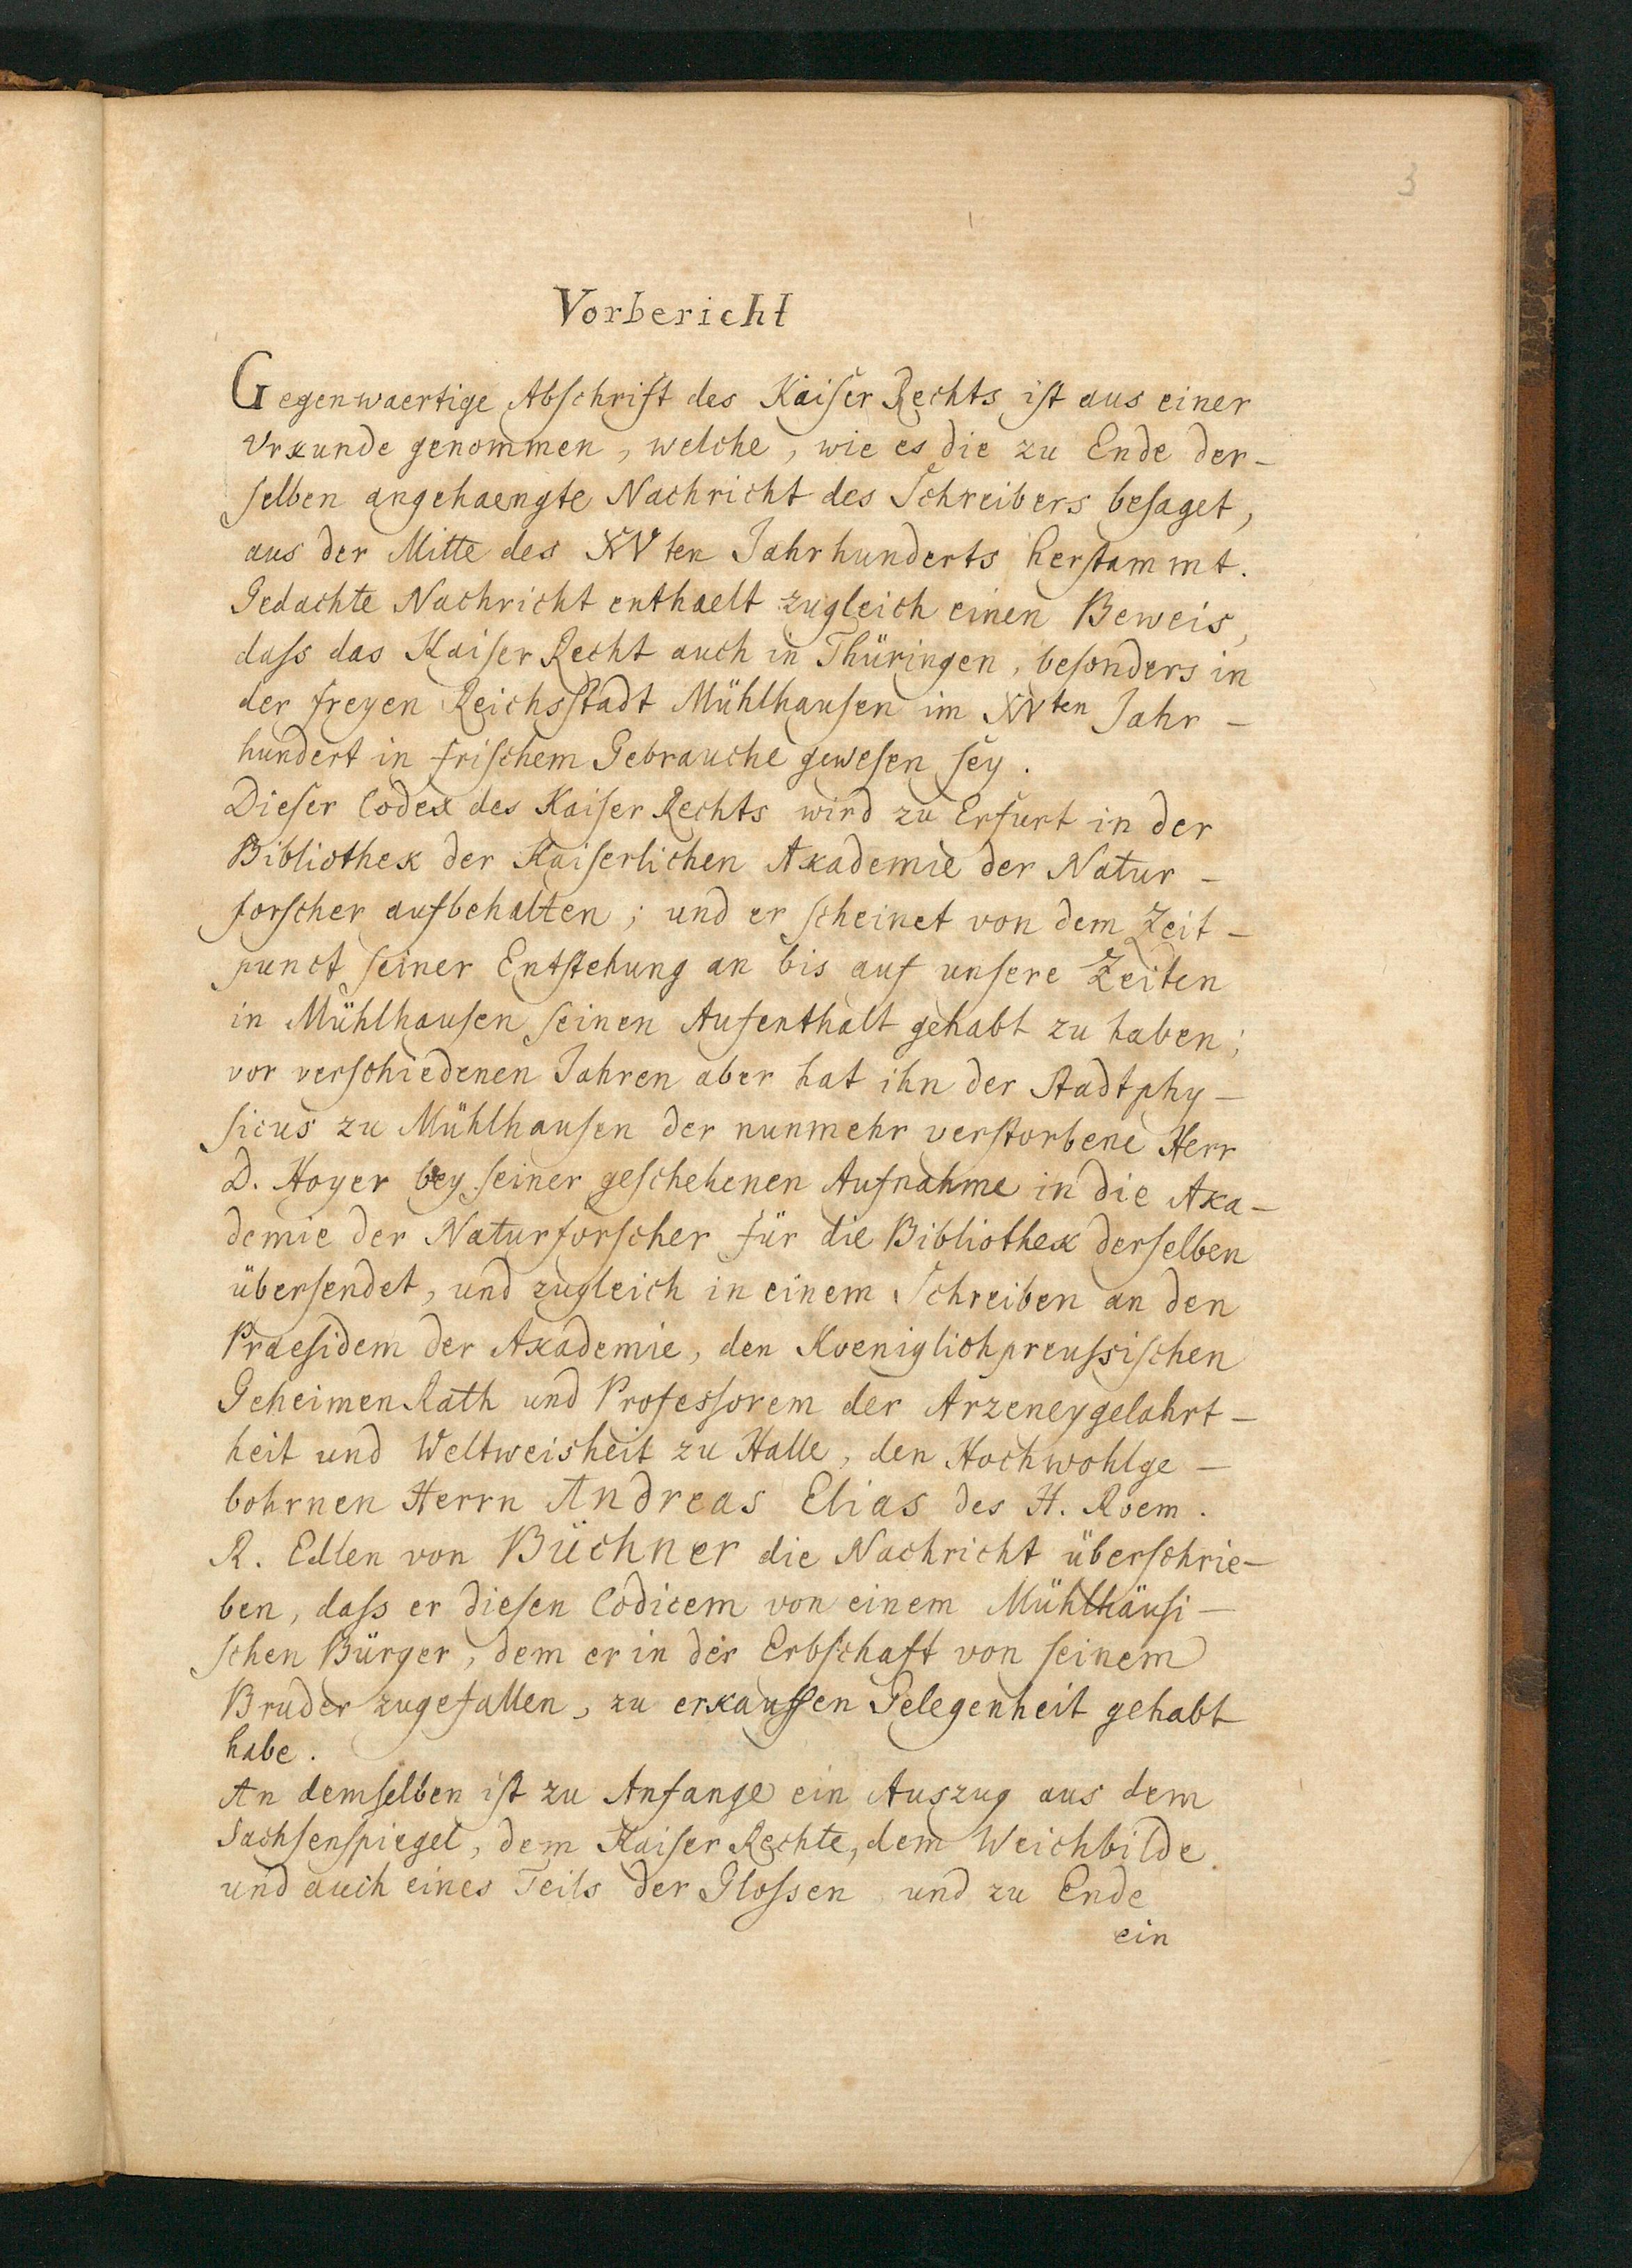 3
Vorbericht
Gegenwaertige Abſchrift des Kaiſer Rechts iſt aus einer
Urkunde genommen, welche, wie es die zu Ende der-
ſelben angehaengte Nachricht des Schreibers beſaget,
aus der Mitte des XVten Jahrhunderts herſtammt.
Gedachte Nachricht enthaelt zugleich einen Beweis,
daſs das Kaiſer Recht auch in Thüringen, beſonders in
der freyen Reichsſtadt Mühlhauſen im XVten Jahr-
hundert in friſchem Gebrauche geweſen ſey.
Dieſer Codex des Kaiſer Rechts wird zu Erfurt in der
Bibliothek der Kaiſerlichen Akademie der Natur-
forſcher aufbehalten; und er ſcheinet von dem Zeit-
punct ſeiner Entſtehung an bis auf unſere Zeiten
in Mühlhauſen ſeinen Aufenthalt gehabt zu haben;
vor verſchiedenen Jahren aber hat ihn der Stadtphy-
ſicus zu Mühlhauſen der nunmehr verſtorbene Herr
D. Hoyer bey ſeiner geſchehenen Aufnahme in die Aka-
demie der Naturforſcher für die Bibliothek derſelben
überſendet, und zugleich in einem Schreiben an den
Praeſidem der Akademie, den Koeniglichpreuſsiſchen
Geheimen Rath und Profeſsorem der Arzeneygelahrt-
heit und Weltweisheit zu Halle, den Hochwohlge-
bohrnen Herrn Andreas Elias des H. Roem.
R. Edlen von Büchner die Nachricht überſchrie-
ben, daſs er dieſen Codicem von einem Mühlhäuſi-
ſchen Bürger, dem er in der Erbſchaft von ſeinem
Bruder zugefallen, zu erkauffen Gelegenheit gehabt
habe.
An demſelben iſt zu Anfange ein Auszug aus dem
Sachſenſpiegel, dem Kaiſer Rechte, dem Weichbilde
und auch eines Teils der Gloſsen und zu Ende
ein